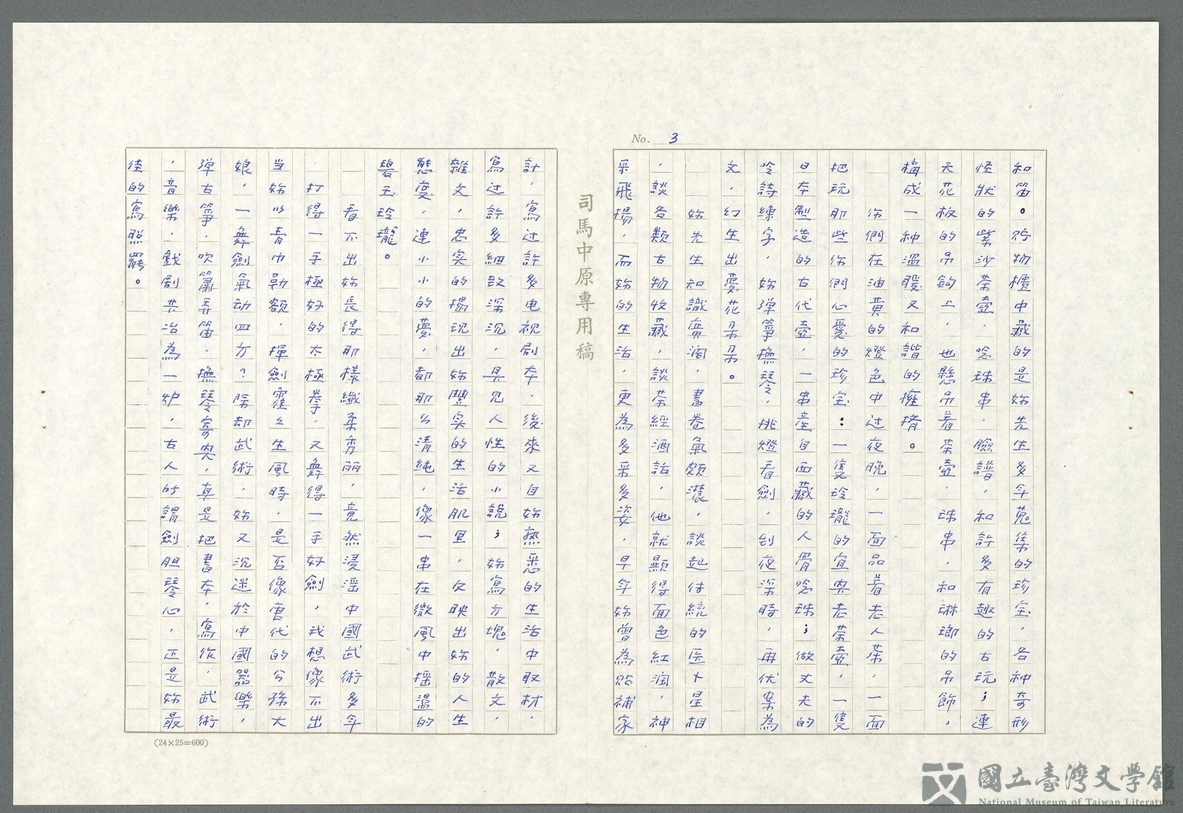 No. 3
和笛。貯物櫃中藏的是她先生多年蒐集的珍宝，各种奇形
怪狀的紫沙茶壺，唸珠串，臉譜，和許多有趣的古玩；連
天花板的吊鉤上，也懸吊着茶壺，珠串，和琳瑯的吊飾，
構成一种溫暖又和諧的擁擠。
你們在油黄的燈色中过夜晚，一面品着老人茶，一面
把玩那些你們心愛的珍宝：一隻玲瓏的宜興老茶壺，一隻
日本製造的古代壺，一串產自西藏的人骨唸珠；做丈夫的
吟詩練字，她彈箏撫琴，挑燈看劍，到夜深時，再伏案為
文，幻生出夢花朵朵。
她先生知識廣闊，書卷氣頗濃，談起传統的医卜星相
，談各類古物收藏，談茶經酒話，他就顯得面色紅潤，神
采飛揚，而她的生活，更為多采多姿，早年她曾為貼補家
司馬中原專用稿
計，寫过許多电視劇本，後來又自她熟悉的生活中取材，
寫过許多細致深沉，具見人性的小說；她寫方塊，散文，
雜文，忠实的揭現出她豐实的生活肌里，反映出她的人生
態度，連小小的夢，都那么清純，像一串在微風中搖盪的
碧玉玲瓏。
看不出她長得那樣纖柔秀丽，竟然浸淫中國武術多年
，打得一手極好的太極拳，又舞得一手好劍，我想像不出
当她以青巾勒额，揮劍霍之生風時，是否像唐代的公孫大
娘，一舞劍氣动四方？除却武術，她又沉迷於中國器樂，
彈古箏，吹簫弄笛，撫琴寄興，真是把書本，寫作，武術
，音樂，戲劇共冶為一炉，古人所謂劍胆琴心，正是她最
佳的寫照罷。
(24×25=600)
國立臺灣文學館
National Museum of Taiwan Literature